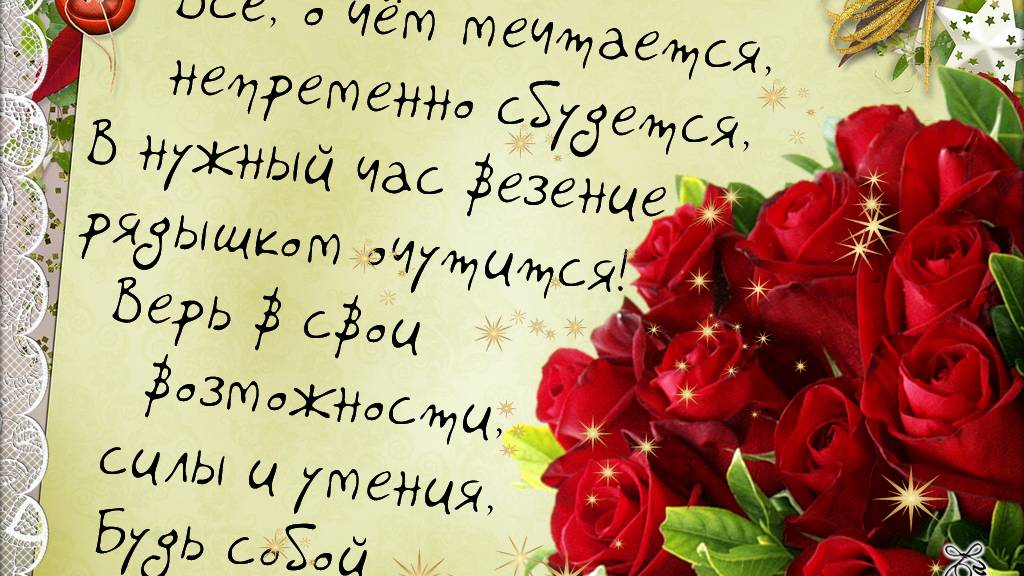 Всё, о чём мечтается,
непременно сбудется,
В нужный час везение
рядышком очутится!
Верь в свои
возможности,
силы и умения,
Будь собой